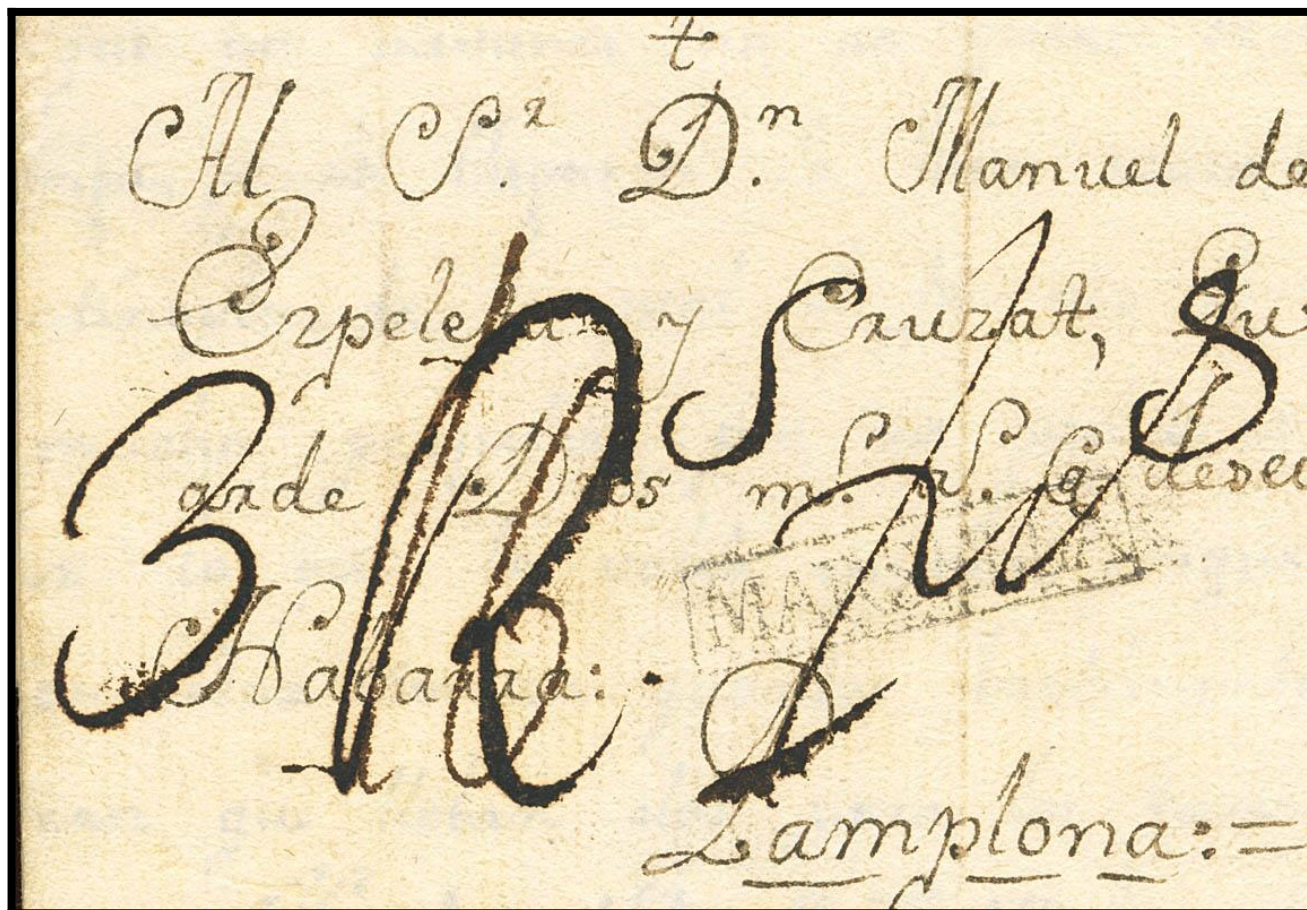 +
Al S.r D.n Manuel de
Ezpeleta y Cruzat, que
garde Dios m.s a.s q deseo
Nabarra:.
Pamplona:=
3 R s